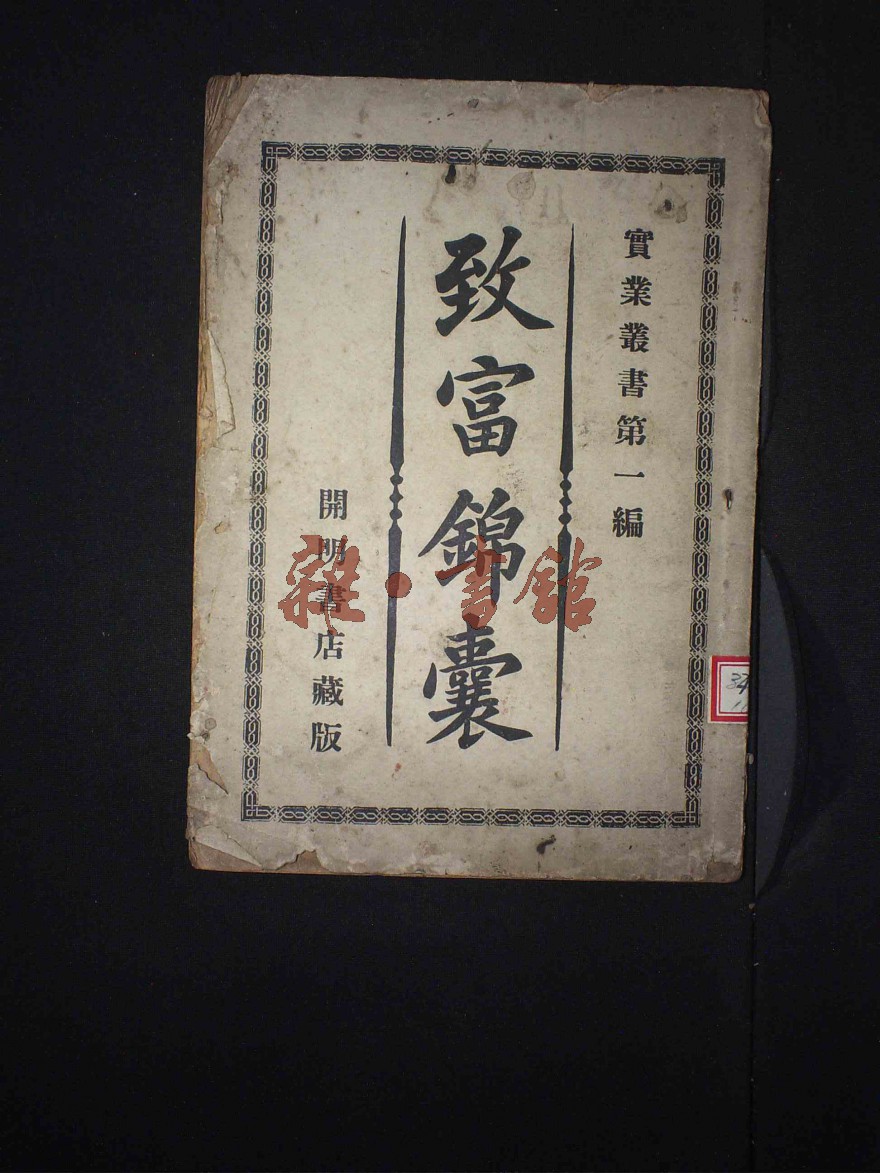 實業叢書第一編
致富錦囊
開明書店藏版
雜·書館